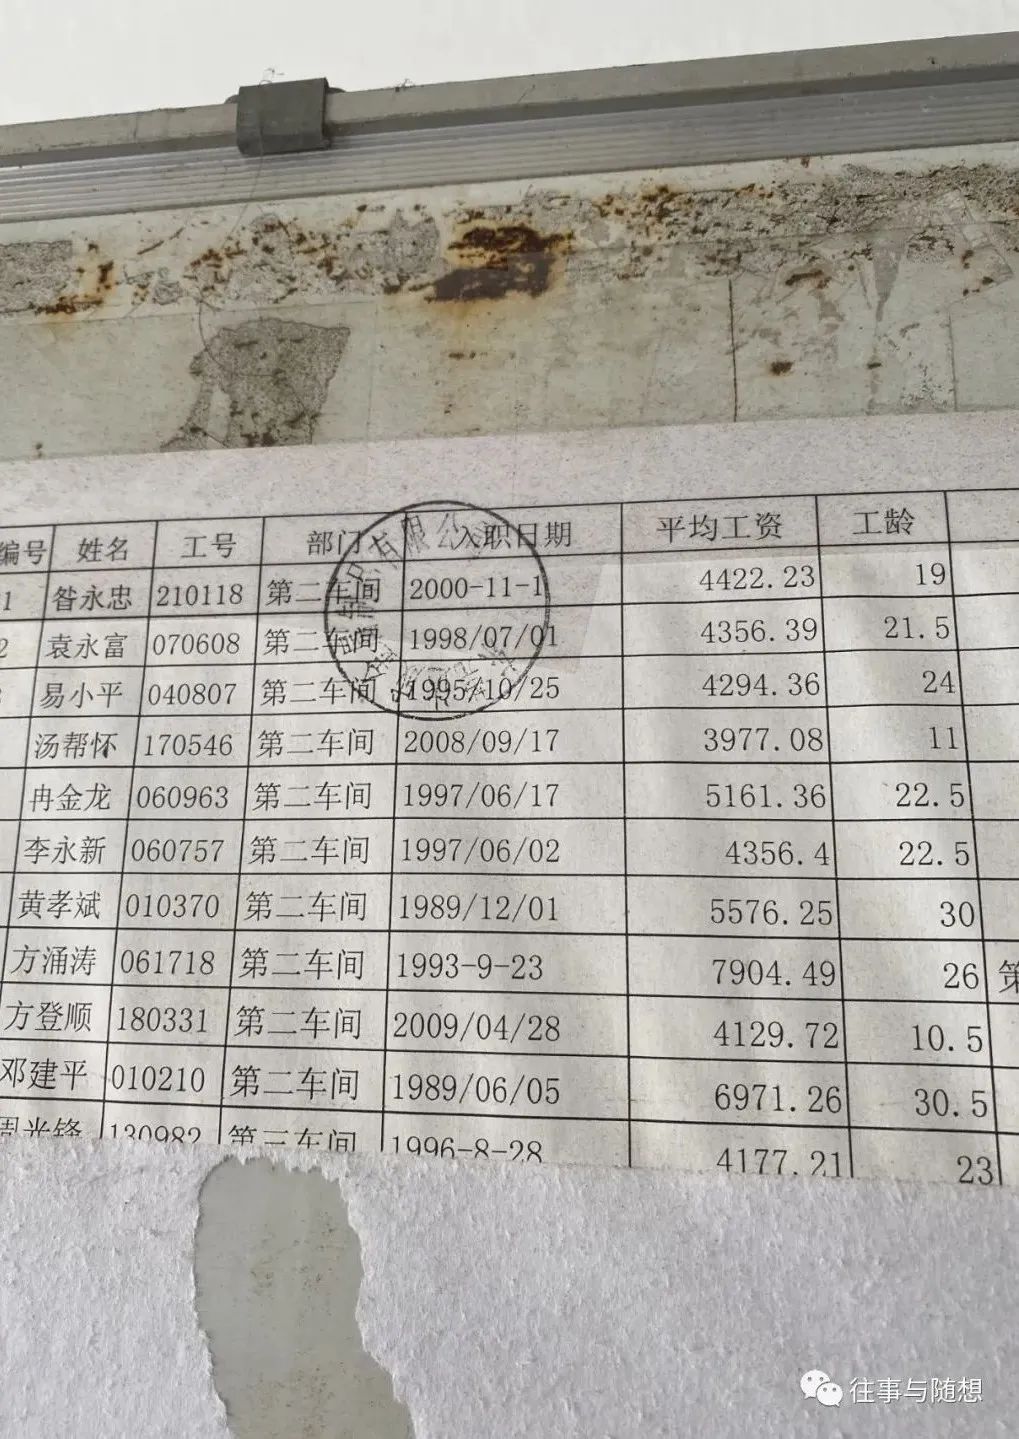 编号 姓名 工号 部门 入职日期 平均工资 工龄
1 昝永忠 210118 第二车间 2000-11-1 4422.23 19
2 袁永富 070608 第二车间 1998/07/01 4356.39 21.5
易小平 040807 第二车间 1995/10/25 4294.36 24
汤帮怀 170546 第二车间 2008/09/17 3977.08 11
冉金龙 060963 第二车间 1997/06/17 5161.36 22.5
李永新 060757 第二车间 1997/06/02 4356.4 22.5
黄孝斌 010370 第二车间 1989/12/01 5576.25 30
方涌涛 061718 第二车间 1993-9-23 7904.49 26 第
方登顺 180331 第二车间 2009/04/28 4129.72 10.5
邓建平 010210 第二车间 1989/06/05 6971.26 30.5
周光锋 130982 第三车间 1996-8-28 4177.21 23
有限公
往事与随想